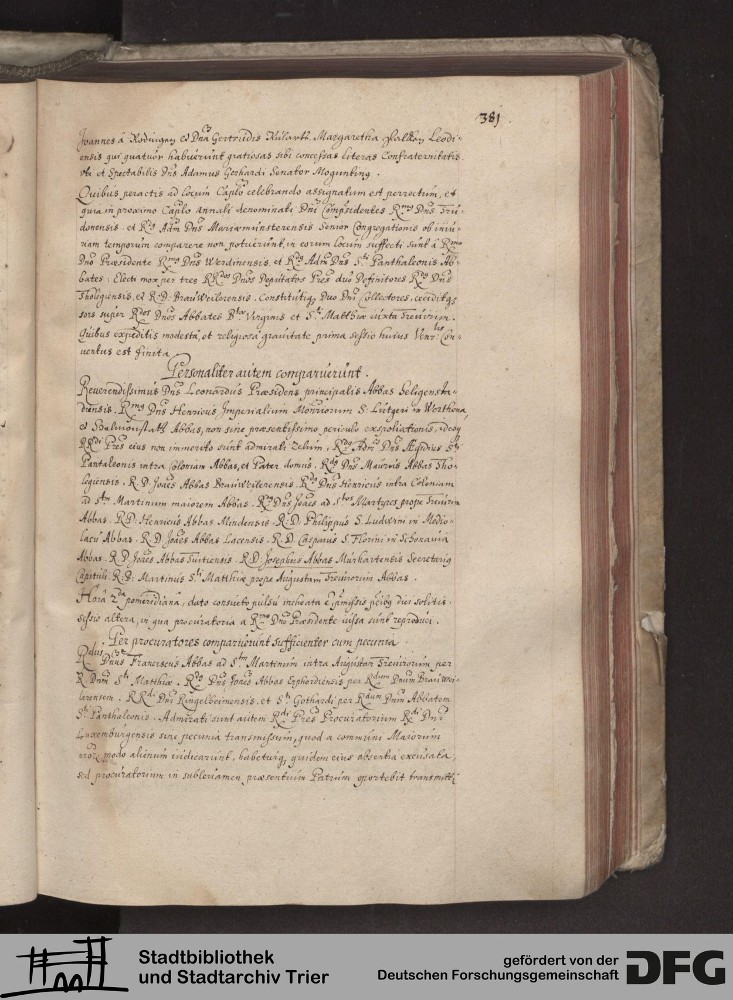 381
Joannes á Rodingen et Dña Gertrudis Kulartz. Margaretha Leodi-
ensis qui quatuor habuerunt gratiosas sibi concessas literas Confraternitatis
uti et Spectabilis Dñs Adamus Gerhardi Senator Mogunting.
Quibus peractis ad locum Caplo celebrando assignatum est perrectum, et
quia in proximo Caplo annali denominati Dñi Compsidentes Rmo Dñs Trui-
donensis. et Rdg Adm Dñs Mariaemünsterensis Senior Congregationis ob iniu-
riam temporum comparere non potuerunt, in eorum locum suffecti sunt á Rmo
Dno Praesidente Rmo Dñs Werdinensis, et Rdg Adm Dñs S. Panthaleonis Ab-
bates. Electi mox per tres RRdos Dños Deputatos Pres duo Definitores Rdg Dñs
Tholegiensis, et R.D. Brauweilerensis. Constitutiq Duo Dñi Collectores, ceciditqs
sors super Rdos Dños Abbates Btae Virginis et Sti Matthiae iuxta Treuirim.
Quibus expeditis modesta, et religiosa grauitate prima sessio huius Venrlis Con-
uentus est finita.
Personaliter autem comparuerunt.
Reverendissimus Dñs Leonardus Praesidens principalis Abbas Seligensta-
diensis. Rmg Dñs Henricus Imperialium Monriorum S. Lutgeri in Werthena
et Helmonstatt Abbas, non sine praesentissimo periculo expoliationis, ideoq
RRdi Pres eius non immerito sunt admirati zelum, Rdg Admu Dñs Ægidius Sti
Pantaleonis intra Coloniam Abbas, et Pater domus. Rdg Dñs Maurus Abbas Tho-
legiensis. R.D. Joães Abbas Brauweilerensis. Rdg Dñs Henricus intra Coloniam
ad Stm Martinum maiorem Abbas. Rdg Dñs Joães ad Stos Martyres prope Treuirim
Abbas. R.D. Henricus Abbas Mindensis. R.D. Philippus S. Ludwini in Medio-
lacu Abbas. R.D. Joães Abbas Lacensis. R.D. Casparus S. Florini in Schonauia
Abbas. R.D. Joães Abbas Tuitiensis. R.D. Josephus Abbas Murhartensis Secretarig
Capituli. R.D. Martinus Sti Matthiae prope Augustam Treuirorum Abbas.
Horâ 2da pomeridiana, dato consueto pulsu incheata ẽ, pmissis pcibg dici solitis.
sessio altera, in qua procuratoria a Rmo Dno Praesidente iussa sunt reproduci.
Per procuratores comparuerunt sufficienter cum pecunia
Rdus Dñus Franciscus Abbas ad Stm Martinum intra Augustam Treuirorum per
R Dnm Sti Matthiae. Rdg Dñs Joñes Abbas Erphordiensis per Rdum Dnum Brauwei-
lerensem. RRdi Dñi Ringelheimensis, et Sti Gothardi per Rdum Dnum Abbatem
Sti Panthaleonis. Admirati sunt autem Rdi Pres Procuratorium Rdi Dñi
Luxemburgensis sine pecunia transmissum, quod a communi Maiorum
nrorum modo alienum iudicarunt, habeturq quidem eius absentia excusata,
sed procuratorium in subleuamen praesentium Patrum oportebit transmitti
Stadtbibliothek
und Stadtarchiv Trier
gefördert von der
Deutschen Forschungsgemeinschaft
DFG